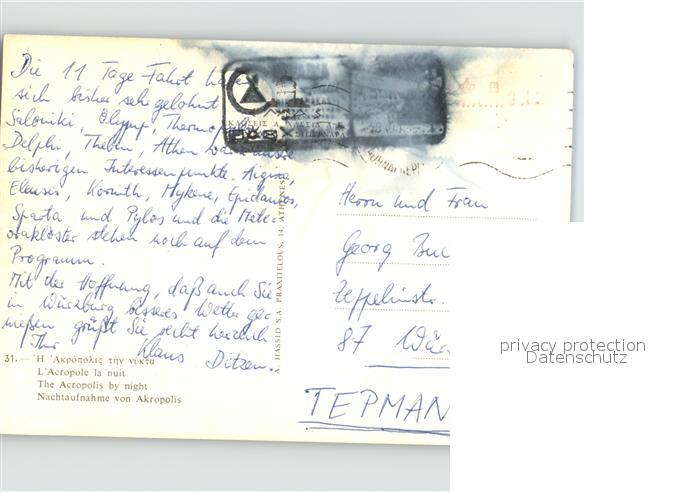 Die 11 Tage Fahrt haben
sich bisher sehr gelohnt
Saloniki, Olymp, Thermopylen
Delphi, Theben, Athen waren unsere
bisherigen Interessenpunkte. Aigina,
Eleusis, Korinth, Mykene, Epidauros,
Sparta und Pylos und die Mete-
oraklöster stehen noch auf dem
Programm.
Mit der Hoffnung, daß auch Sie
in Würzburg besseres Wetter ge-
nießen grüßt Sie recht herzlich
Ihr Klaus Ditzen.
31. — Ἡ Ἀκρόπολις τὴν νύκτα
L'Acropole la nuit
The Acropolis by night
Nachtaufnahme von Akropolis
HASSID S.A. PRAXITELOUS, 14, ATHENES
Herrn und Frau
Georg Buc
Zeppelinstr.
87 Wür
ΓΕΡΜΑΝ
privacy protection
Datenschutz